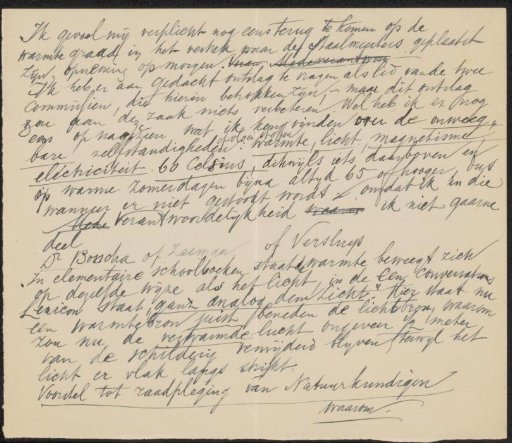 Ik gevoel mij verplicht nog eens terug te komen op de
warmte graad, in het vertrek waar de Staalmeesters geplaatst
zijn, opneming op morgen.
Ik heb er aan gedacht ontslag te vragen als lid van de twee
Commissien, die hierin betrokken zijn, maar dit ontslag
zou aan de zaak niets verbeteren. Wel heb ik er nog
eens op nagezien wat ik kon vinden over de onweeg-
bare zelfstandigheden: warmte, licht, magnetisme
electriciteit. 60 Celsius, dikwijls iets daarboven en
op warme zomerdagen bijna altyd 65 of hooger, dus
wanneer er niet gestookt wordt omdat ik in die
verantwoordelijkheid ik niet gaarne
deel
Dr Bosscha of Zeeman of Versluys
In elementaire schoolboeken staat: de warmte beweegt zich
op dezelfde wijze als het licht, in de een Conversations
Lexicon staat, "ganz analog dem Licht". Hier staat nu
een warmtebron juist beneden de lichtbron, waarom
zou nu de verwarmde lucht ongeveer meter
van de schilderij verwijderd blyven terwyl het
licht er vlak langs strijkt.
Voorstel tot raadpleging van Natuurkundigen
waarom.